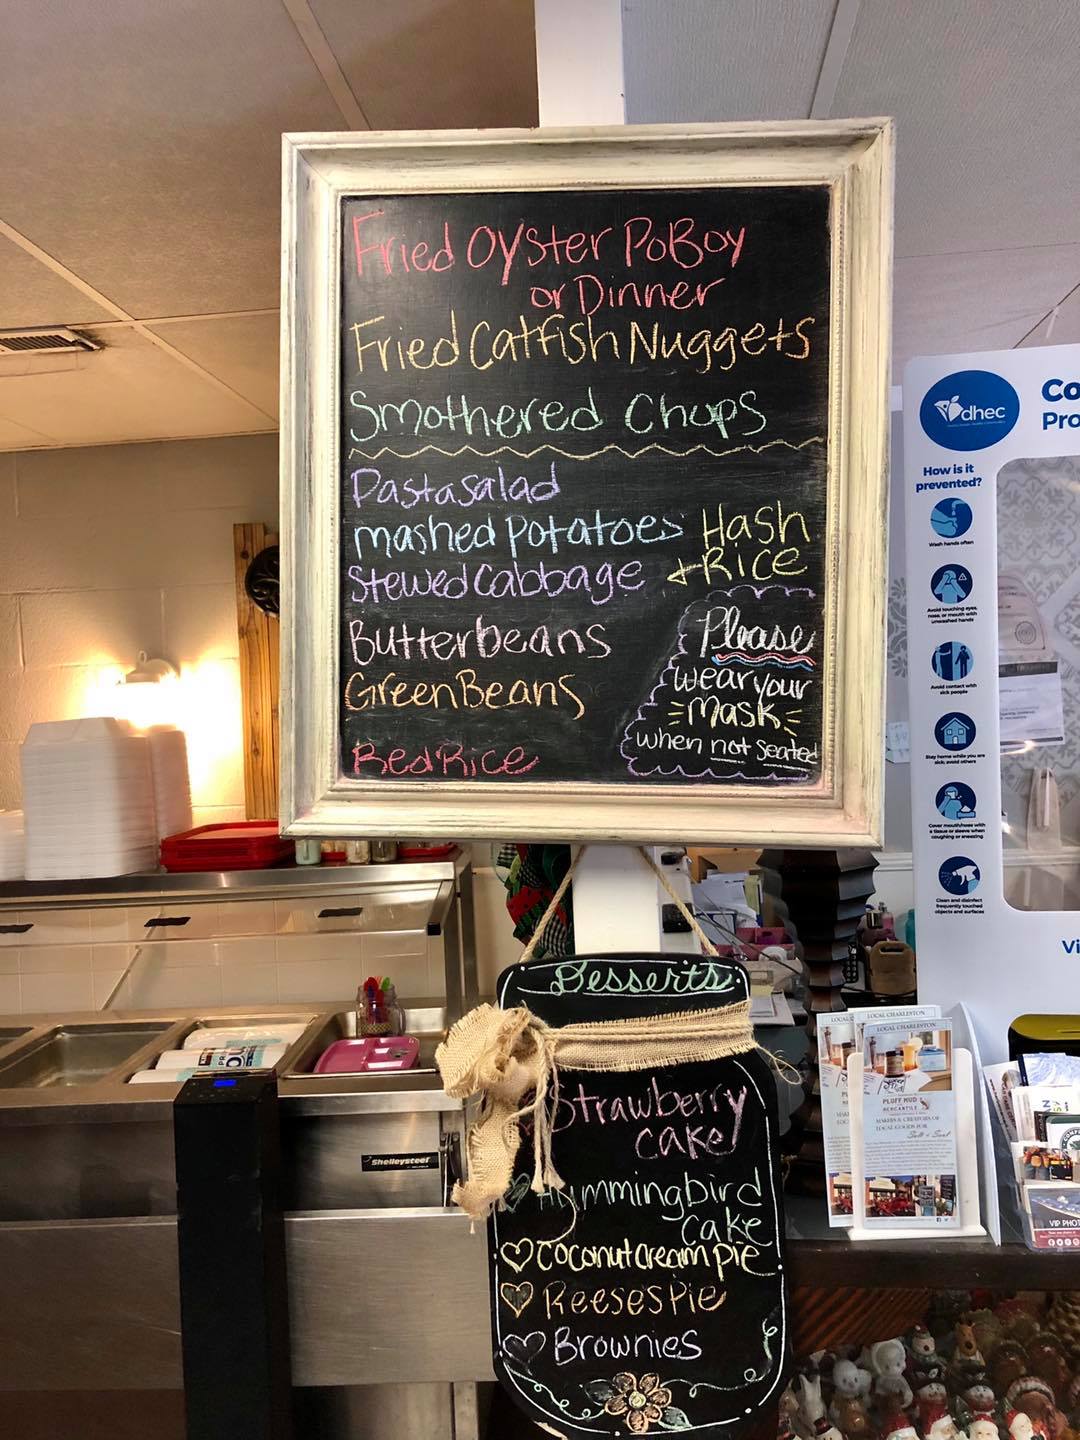 Fried Oyster PoBoy
or Dinner
Fried Catfish Nuggets
Smothered Chops
Pastasalad
mashed potatoes
Stewed Cabbage
Hash
+ Rice
Butterbeans
Green Beans
Red Rice
Please
wear your
Mask
when not seated
Desserts
Strawberry
cake
Hummingbird
cake
Coconut cream pie
Reeses Pie
Brownies
dhec
Co
Pro
How is it
prevented?
Wash hands often
Avoid touching eyes,
nose, or mouth with
unwashed hands
Avoid contact with
sick people
Stay home while you are
sick; avoid others
Cover mouth/nose with
a tissue or sleeve when
coughing or sneezing
Clean and disinfect
frequently touched
objects and surfaces
Vi
Shelleysteel
LOCAL CHARLESTON
LOCAL CHARLESTON
PLUFF MUD
MERCANTILE
MAKERS & CREATORS OF
LOCAL GOODS FOR
VIP PHOT